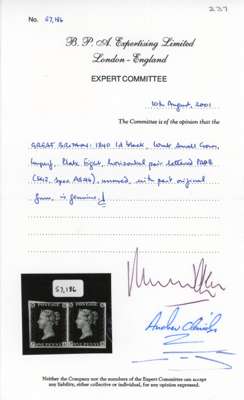 237
No. 57,186
B. P. A. Expertising Limited
London - England
EXPERT COMMITTEE
10th August, 2001
The Committee is of the opinion that the
GREAT BRITAIN: 1840 1d black, Wmk Small Crown,
Imperf, Plate Eight, horizontal pair lettered
(SG2, Spec AS46), unused, with part original
gum, is genuine
57,186
POSTAGE POSTAGE
Neither the Company nor the members of the Expert Committee can accept
any liability, either collective or individual, for any opinion expressed.